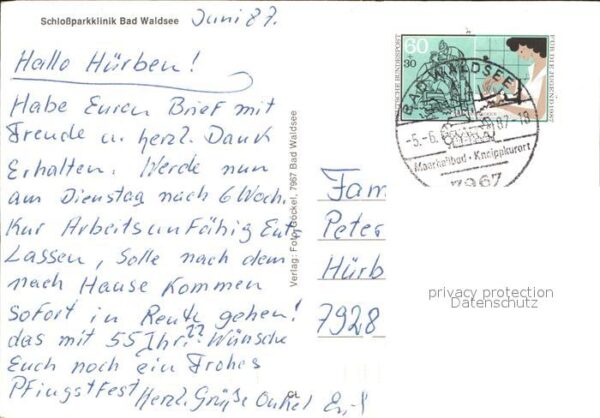 Schloßparkklinik Bad Waldsee
Juni 87.
Hallo Hürben!
Habe Euren Brief mit
Freude u. herzl. Dank
Erhalten. Werde nun
am Dienstag nach 6 Woch.
Kur Arbeitsunfähig Ent,
Lassen, Solle nach dem
nach Hause Kommen
Sofort in Rente gehen!
das mit 55 Jhr. ?? Wünsche
Euch noch ein Frohes
Pfingstfest Herzl. Grüße Onkel
Verlag: Foto Göckel, 7967 Bad Waldsee
DEUTSCHE BUNDESPOST
60
+30
FÜR DIE JUGEND 1987
BAD WALDSEE
-5.-6. 87.-18
Moorheilbad · Kneippkurort
7967
Fam
Peter
Hürb
7928
privacy protection
Datenschutz